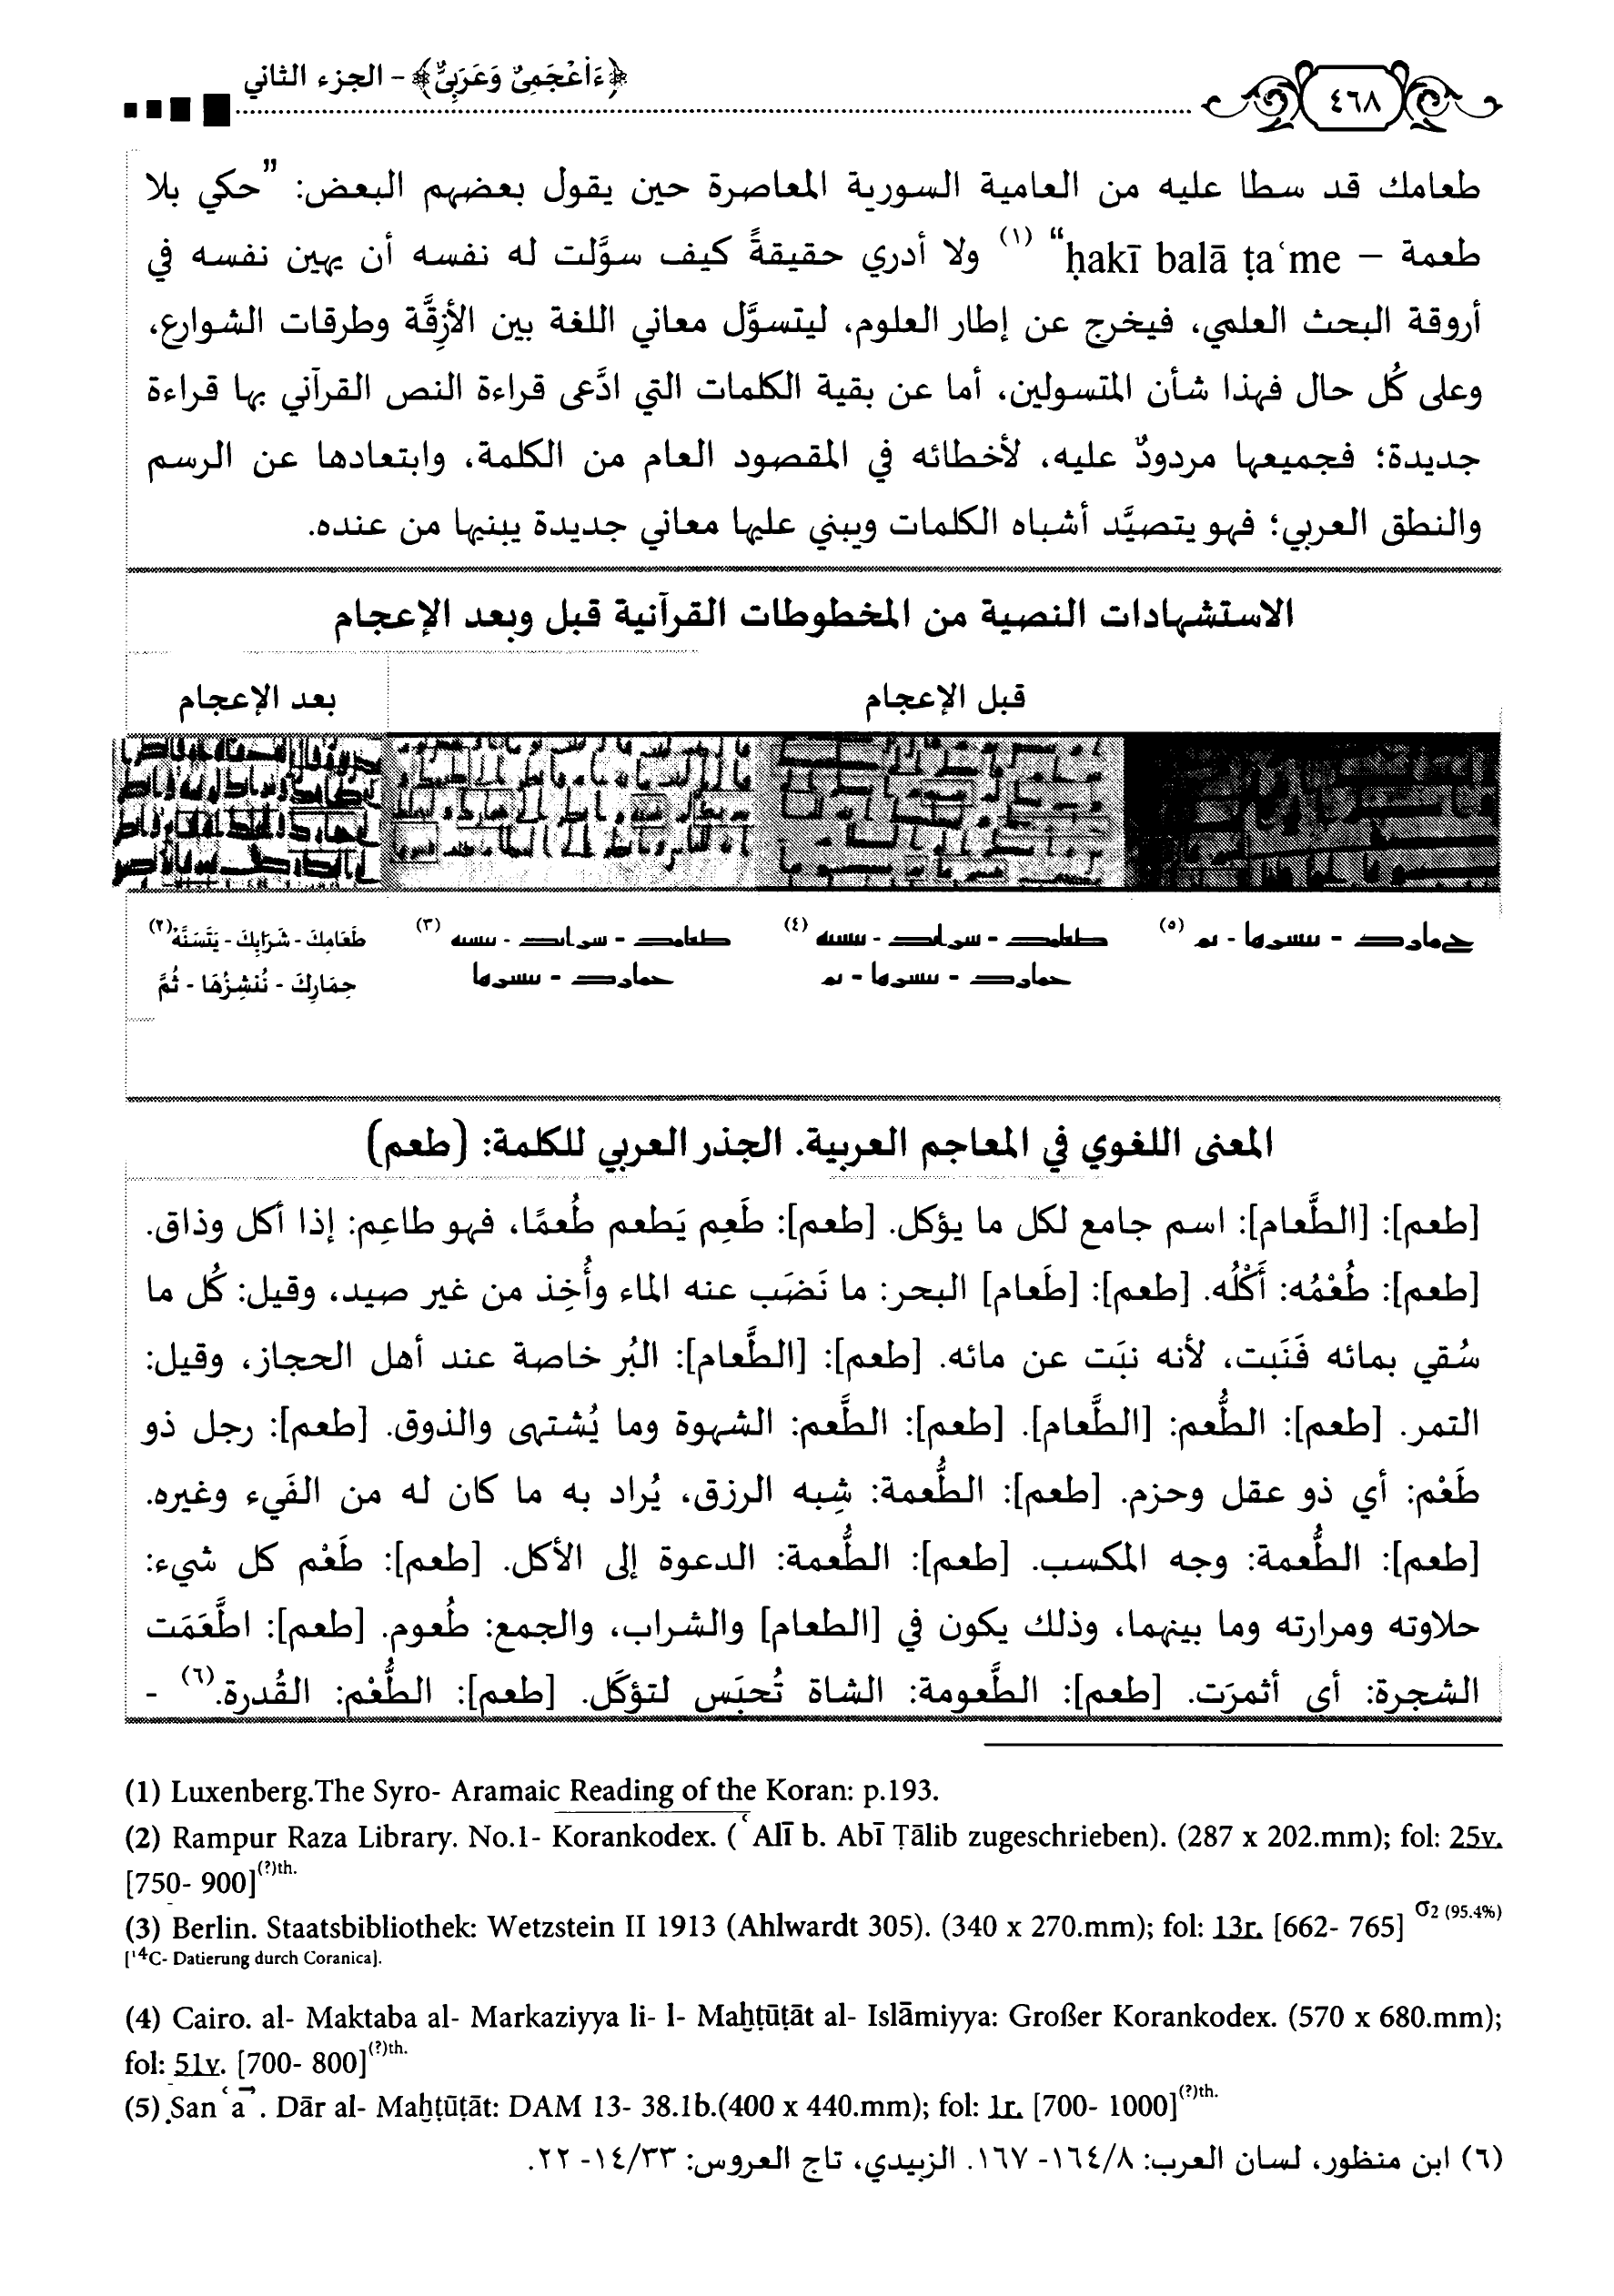 ٤٦٨
﴿ءَا۬عْجَمِىٌّ وَعَرَبِىٌّ﴾ - الجزء الثاني
طعامك قد سطا عليه من العامية السورية المعاصرة حين يقول بعضهم البعض: ”حكي بلا
طعمة – ḥakī balā ṭaʿme“ (١) ولا أدري حقيقةً كيف سوَّلت له نفسه أن يهين نفسه في
أروقة البحث العلمي، فيخرج عن إطار العلوم، ليتسوَّل معاني اللغة بين الأزِقَّة وطرقات الشوارع،
وعلى كُل حال فهذا شأن المتسولين، أما عن بقية الكلمات التي ادَّعى قراءة النص القرآني بها قراءة
جديدة؛ فجميعها مردودٌ عليه، لأخطائه في المقصود العام من الكلمة، وابتعادها عن الرسم
والنطق العربي؛ فهو يتصيَّد أشباه الكلمات ويبني عليها معاني جديدة يبنيها من عنده.
الاستشهادات النصية من المخطوطات القرآنية قبل وبعد الإعجام
قبل الإعجام
بعد الإعجام
(٥)
(٤)
(٣)
طَعَامِكَ - شَرَابِكَ - يَتَسَنَّهْ (٢)
حِمَارِكَ - نُنْشِزُهَا - ثُمَّ
المعنى اللغوي في المعاجم العربية. الجذر العربي للكلمة: (طعم)
[طعم]: [الطَّعام]: اسم جامع لكل ما يؤكل. [طعم]: طَعِم يَطعم طُعمًا، فهو طاعِم: إذا أكل وذاق.
[طعم]: طُعْمُه: أَكْلُه. [طعم]: [طَعام] البحر: ما نَضَب عنه الماء وأُخِذ من غير صيد، وقيل: كُل ما
سُقي بمائه فَنَبت، لأنه نبَت عن مائه. [طعم]: [الطَّعام]: البُر خاصة عند أهل الحجاز، وقيل:
التمر. [طعم]: الطُّعم: [الطَّعام]. [طعم]: الطَّعم: الشهوة وما يُشتهى والذوق. [طعم]: رجل ذو
طَعْم: أي ذو عقل وحزم. [طعم]: الطُّعمة: شِبه الرزق، يُراد به ما كان له من الفَيء وغيره.
[طعم]: الطُّعمة: وجه المكسب. [طعم]: الطُّعمة: الدعوة إلى الأكل. [طعم]: طَعْم كل شيء:
حلاوته ومرارته وما بينهما، وذلك يكون في [الطعام] والشراب، والجمع: طُعوم. [طعم]: اطَّعَمَت
الشجرة: أي أثمرَت. [طعم]: الطَّعومة: الشاة تُحبَس لتؤكَل. [طعم]: الطُّعْم: القُدرة.(٦) -
(1) Luxenberg.The Syro- Aramaic Reading of the Koran: p.193.
(2) Rampur Raza Library. No.1- Korankodex. (ʿAlī b. Abī Ṭālib zugeschrieben). (287 x 202.mm); fol: 25v.
[750- 900](?)th.
(3) Berlin. Staatsbibliothek: Wetzstein II 1913 (Ahlwardt 305). (340 x 270.mm); fol: 13r. [662- 765] σ2 (95.4%)
[¹⁴C- Datierung durch Coranica].
(4) Cairo. al- Maktaba al- Markaziyya li- l- Maḫṭūṭāt al- Islāmiyya: Großer Korankodex. (570 x 680.mm);
fol: 51v. [700- 800](?)th.
(5) Ṣanʿāʾ. Dār al- Maḫṭūṭāt: DAM 13- 38.1b.(400 x 440.mm); fol: 1r. [700- 1000](?)th.
(٦) ابن منظور، لسان العرب: ١٦٤/٨- ١٦٧. الزبيدي، تاج العروس: ١٤/٣٣- ٢٢.